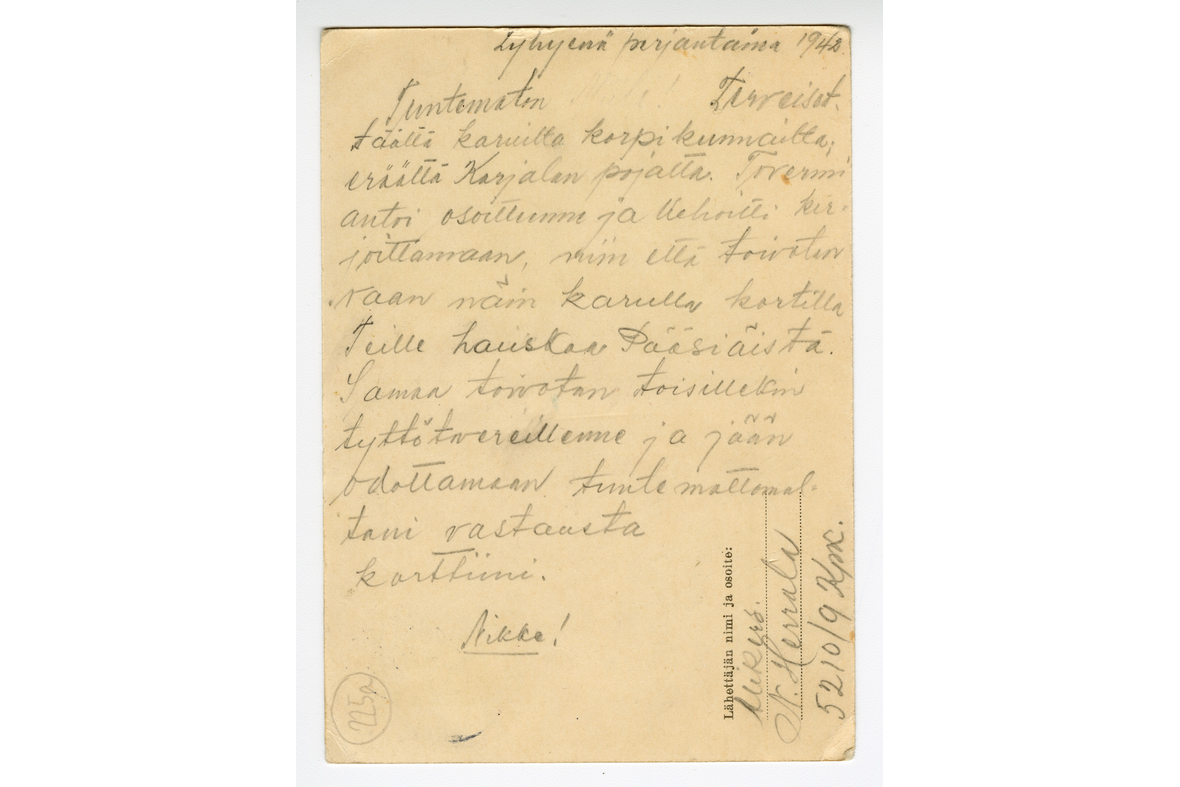 Lyhyenä perjantaina 1942.
Tuntematon Terveiset.
täältä karuilta korpikunnailta,
eräältä Karjalan pojalta. Toverini
antoi osoittenne ja kehoitti kir-
joittamaan, niin että toivotan
vaan näin karulla kortilla
Teille hauskaa Pääsiäistä.
Samaa toivotan toisillekin
tyttötovereillenne ja jään
odottamaan tuntemattomal-
tani vastausta
korttiini.
Nikke!
Lähettäjän nimi ja osoite:
Alikers.
N. Herrala
5210/9 Kpk.
225a